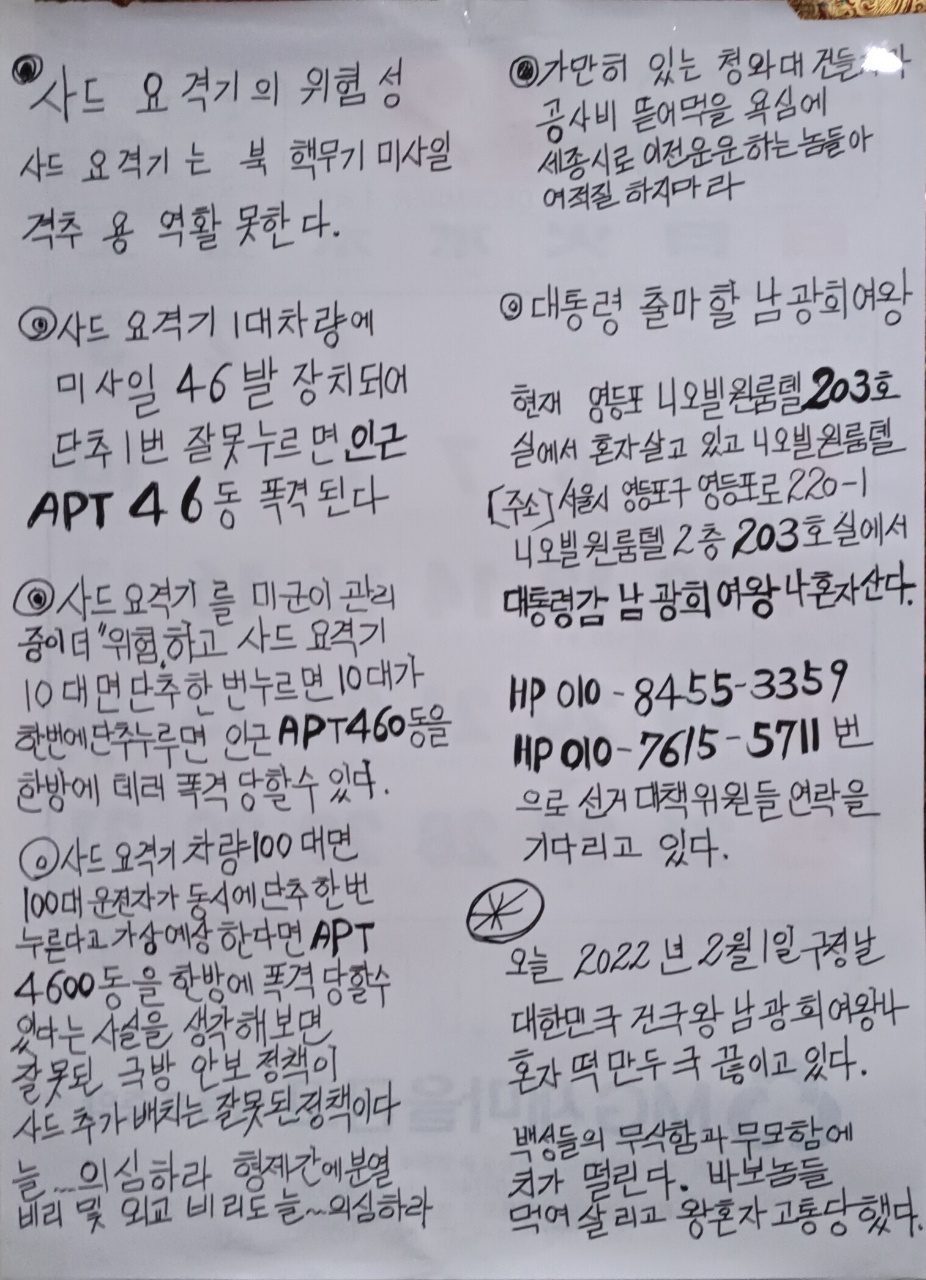 사드 요격기의 위험성
사드 요격기는 북 핵무기 미사일
격추용 역활 못한다.
사드 요격기 1대차량에
미사일 46발 장치되어
단추1번 잘못누르면 인근
APT 46동 폭격된다
사드요격기를 미군이 관리
중이더"위험,하고 사드 요격기
10대면단추한번누르면10대가
한번에단추누루면 인근 APT460동을
한방에 테래 폭격 당할수 있다.
사드요격기차량100대면
100대운전자가 동시에단추한번
누른다고가상예상한다면 APT
4600동을 한방에 폭격 당할수
있다는 사실을 생각해보면
잘못된 국방 안보정책이
사드추가배치는잘못된정책이다
늘~의심하라 형제간에분열
비리 및 외교 비리도늘~의심하라
가만히 있는 청와대
공사비 뜯어먹을 욕심에
세종시로이전운운하는놈들아
여적질하지마라
대통령 출마할 남광희여왕
현재 영등포 니오빌원룸텔203호
실에서 혼자살고 있고 니오빌원룸텔
[주소]서울시 영등포구 영등포로220-1
니오빌원룸텔 2층 203호실에서
대통령감 남광희여왕나혼자산다.
HP 010-8455-3359
HP 010-7615-5711번
으로 선거대책위원들 연락을
기다리고 있다.
오늘 2022년 2월1일구정날
대한민국 건국왕 남광희여왕나
혼자 떡만두국 끓이고 있다.
백성들의 무식함과무모함에
치가 떨린다. 바보놈들
먹여살리고 왕혼자고통당했다.
MG새마을금고